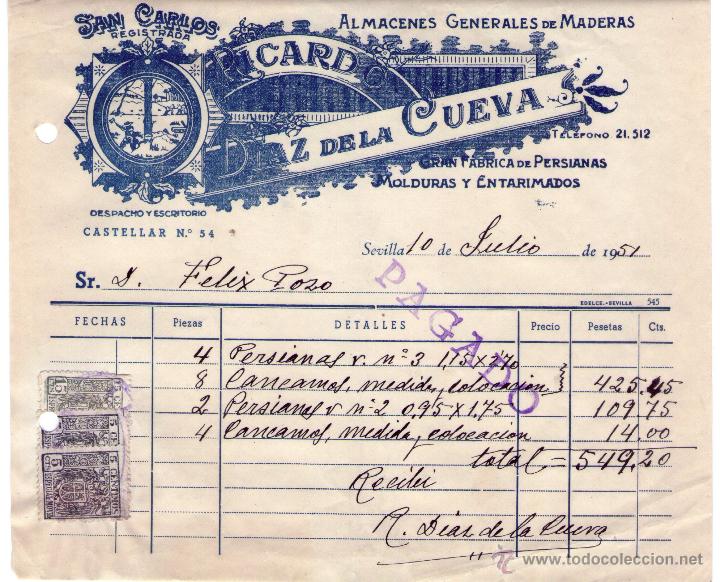 SAN CARLOS
REGISTRADA
ALMACENES GENERALES DE MADERAS
RICARDO
DIAZ DE LA CUEVA
TELÉFONO 21.512
GRAN FABRICA DE PERSIANAS
MOLDURAS Y ENTARIMADOS
DESPACHO Y ESCRITORIO
CASTELLAR N.º 54
Sevilla 10 de Julio de 1951
Sr. D. Felix Pozo
PAGADO
EDELCE.-SEVILLA 545
FECHAS Piezas DETALLES Precio Pesetas Cts.
4 Persianas v. nº 3 1,15 x 1,70
8 Cancamos, medida, colocacion 425.45
2 Persianas v nº 2 0,95 x 1,75 109.75
4 Cancamos, medida, y colocacion 14.00
total = 549.20
Recibi
R. Diaz de la Cueva
15
5
5 CENTIMOS 5
todocoleccion.net